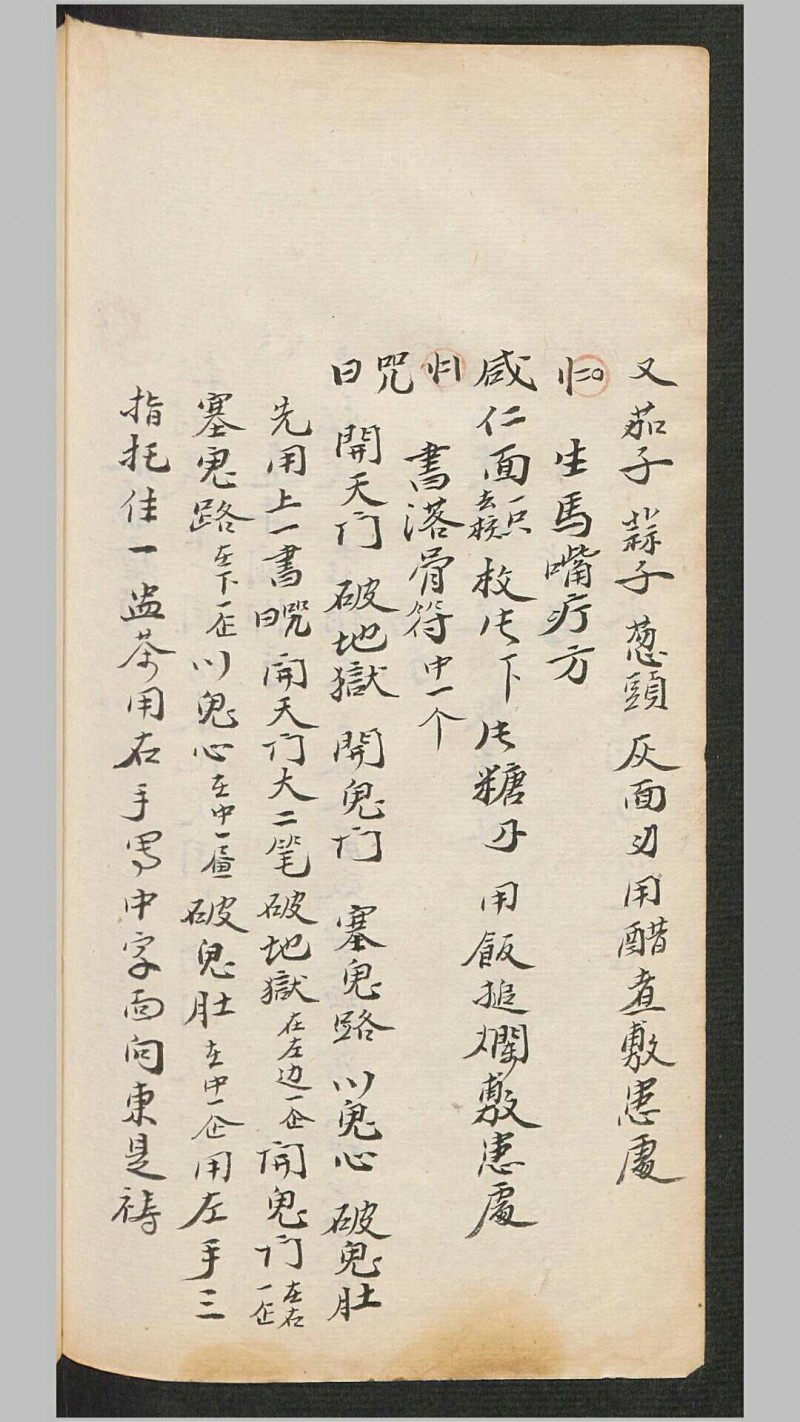 又茄子 蒜子 葱頭 灰面 用醋煮敷患處
生馬嘴疔方
咸仁面一只去核 枚 下 糖 用飯搥爛敷患處
書落骨符中一个
咒曰 開天门 破地獄 開鬼门 塞鬼路 川鬼心 破鬼肚
先用上一書咒曰 開天门大二笔 破地獄在左边一企 開鬼门在右一企
塞鬼路在下一企 川鬼心在中一 破鬼肚在中一企 用左手三
指托住一盅茶用右手写中字面向東是祷